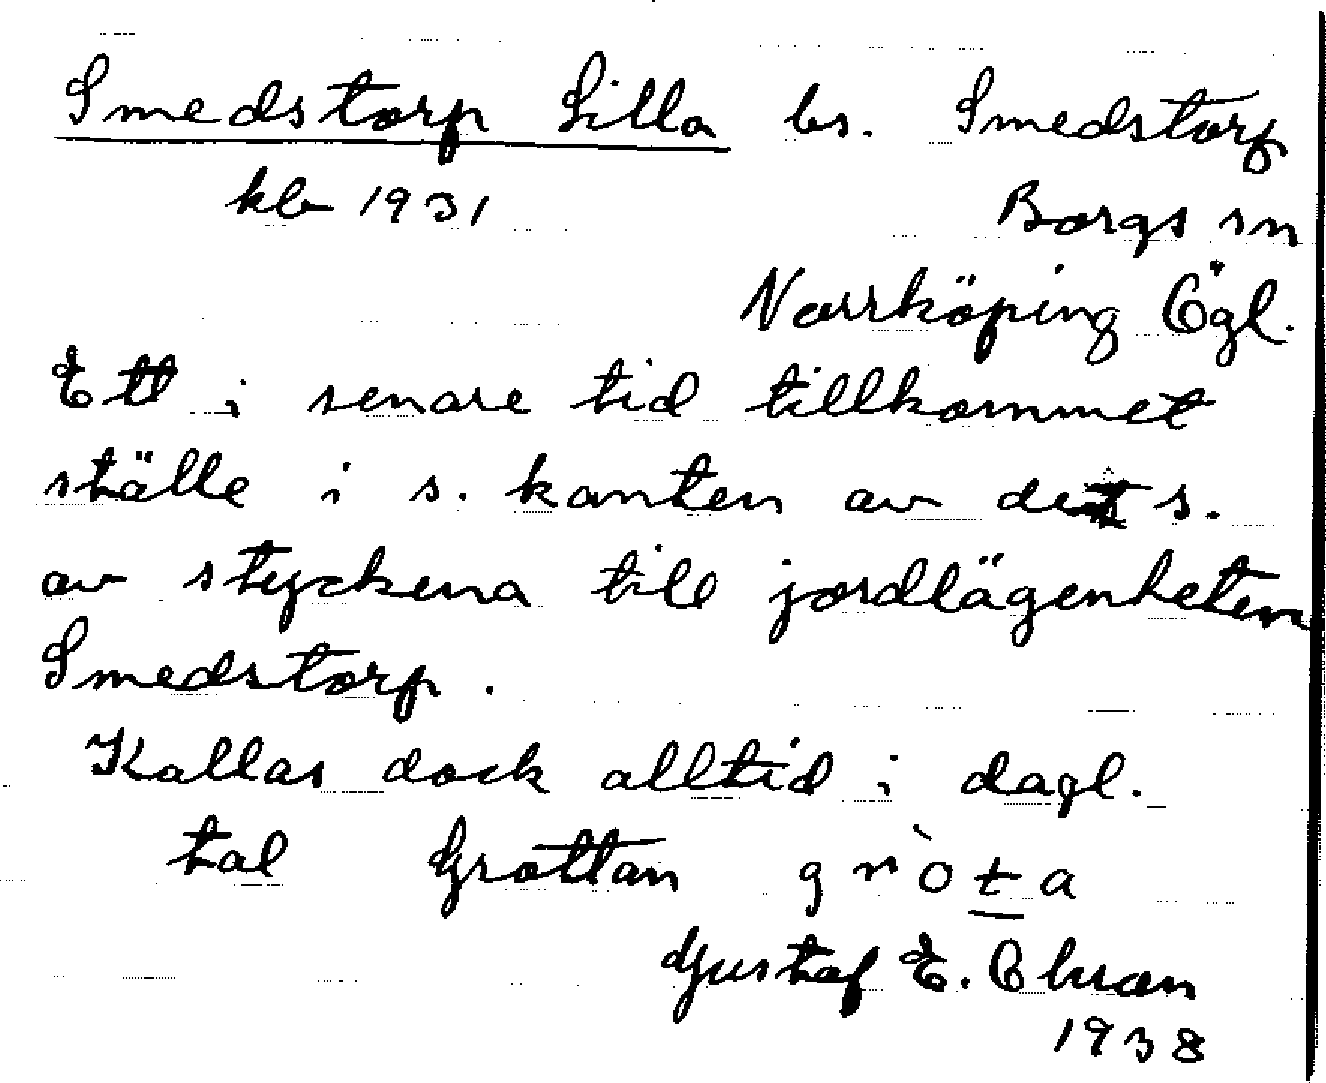 Smedstorp Lilla bs. Smedstorp
kb 1931 Borgs sn
Norrköping Ögl.
Ett i senare tid tillkommet
ställe i s. kanten av det s.
av styckena till jordlägenheten
Smedstorp.
Kallas dock alltid i dagl.
tal Grottan gròta
Gustaf E.
1938